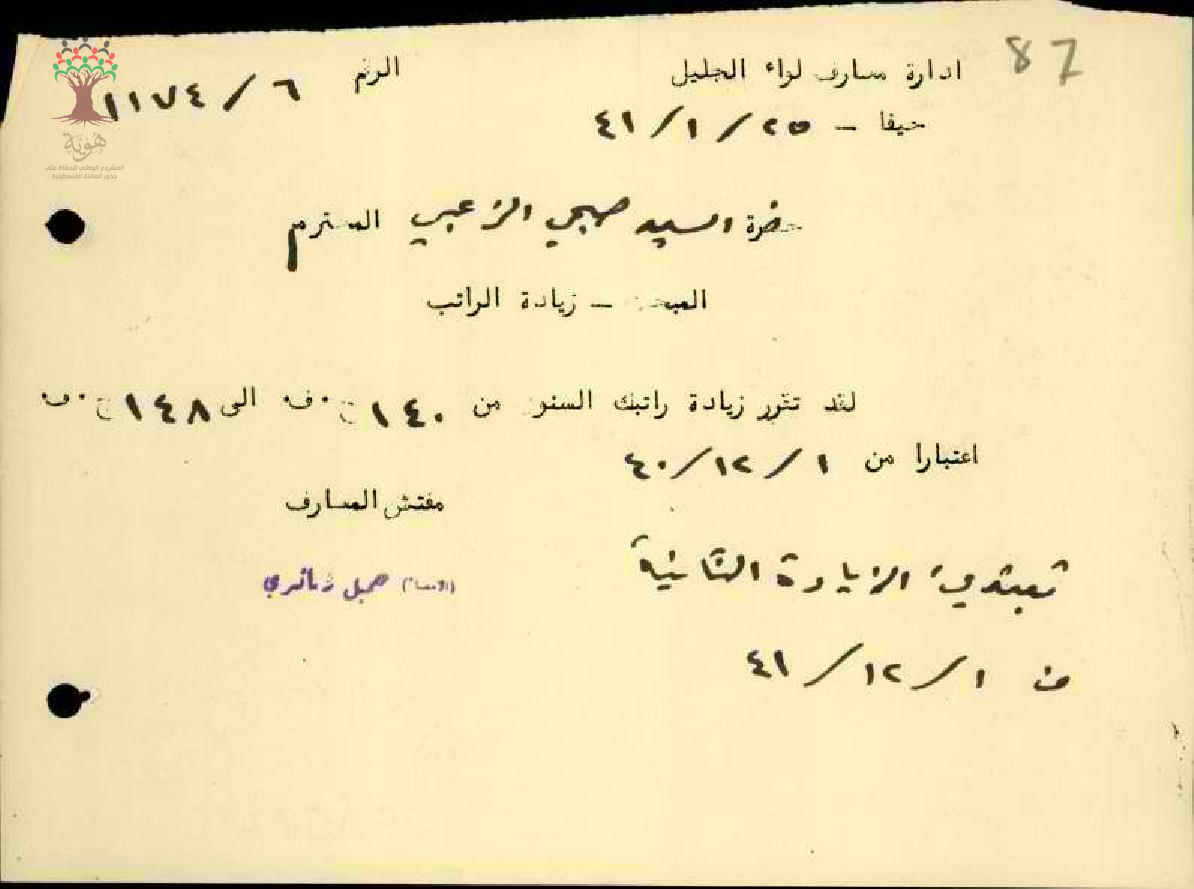 87
ادارة معارف لواء الجليل
الرقم ٦ / ١١٧٤
حيفا – ٢٥ / ١ / ٤١
هُويَّة
المشروع الوطني للحفاظ على
جذور العائلة الفلسطينية
حضرة السيد صبحي الزعبي المحترم
المبحث – زيادة الراتب
لقد تقرر زيادة راتبك السنوي من ١٤٠ ج٠ف٠ الى ١٤٨ ج٠ف٠
اعتبارا من ١ / ١٢ / ٤٠
مفتش المعارف
(الامضاء)
تبتدئ الزيادة الثانية
من ١ / ١٢ / ٤١